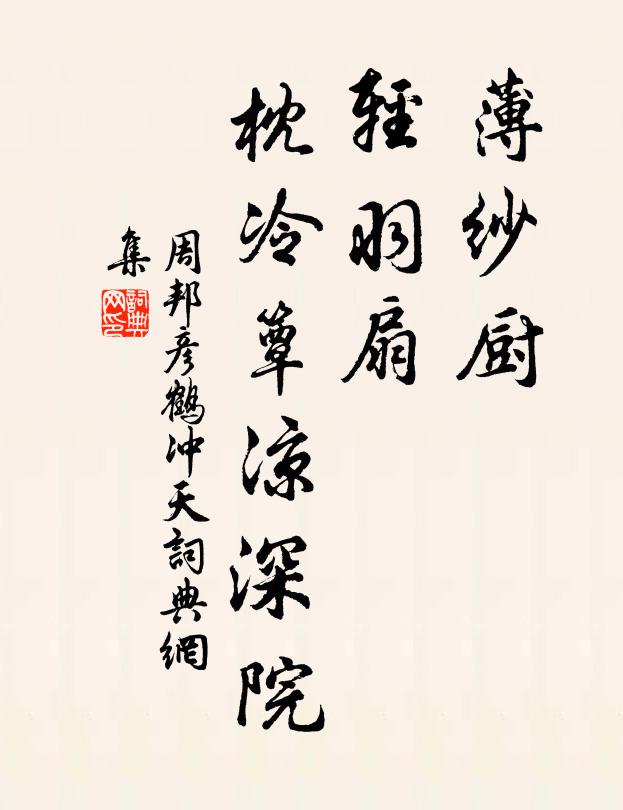 薄纱厨
輕羽扇
枕冷簟凉深院
周邦彦鶴冲天詞典網
集
詞典网印